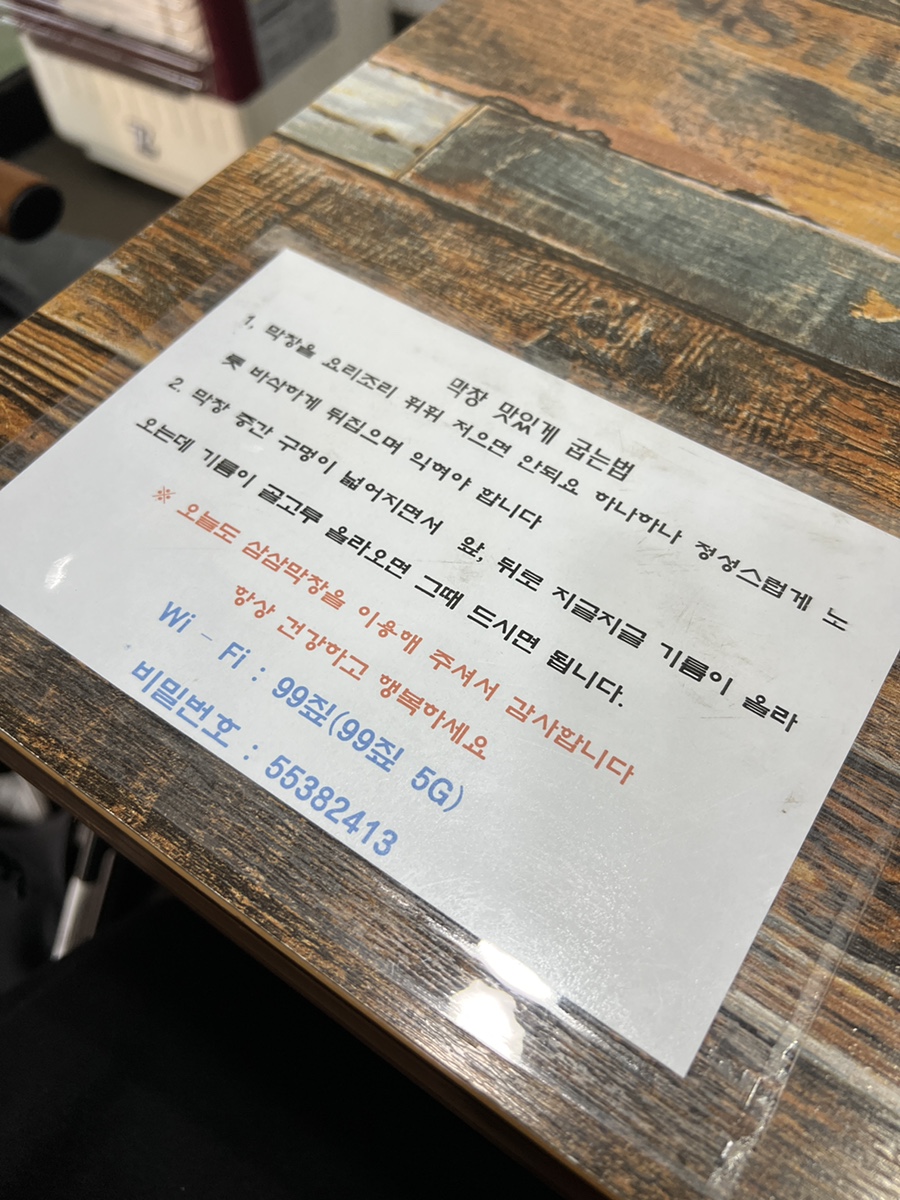 막창 맛있게 굽는법
1. 막창을 요리조리 휘휘 저으면 안되요 하나하나 정성스럽게 노
릇 바삭하게 뒤집으며 익혀야 합니다
2. 막창 중간 구멍이 넓어지면서 앞, 뒤로 지글지글 기름이 올라
오는데 기름이 골고루 올라오면 그때 드시면 됩니다.
※ 오늘도 삼삼막창을 이용해 주셔서 감사합니다
항상 건강하고 행복하세요
Wi - Fi : 99짚(99짚 5G)
비밀번호 : 55382413